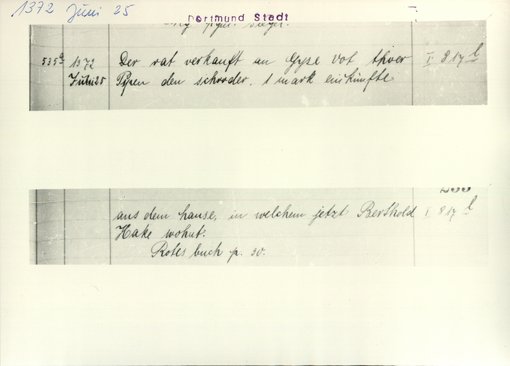 1372 Juni 25
Dortmund Stadt
535a 1372 Der rat verkauft an Gyse Vot thver I 817 b
Juni 25 Pypen den schroder, 1 mark einkünfte
aus dem hause, in welchem jetzt Berthold I 817 b
Hake wohnt.
Rotes buch p. 30.